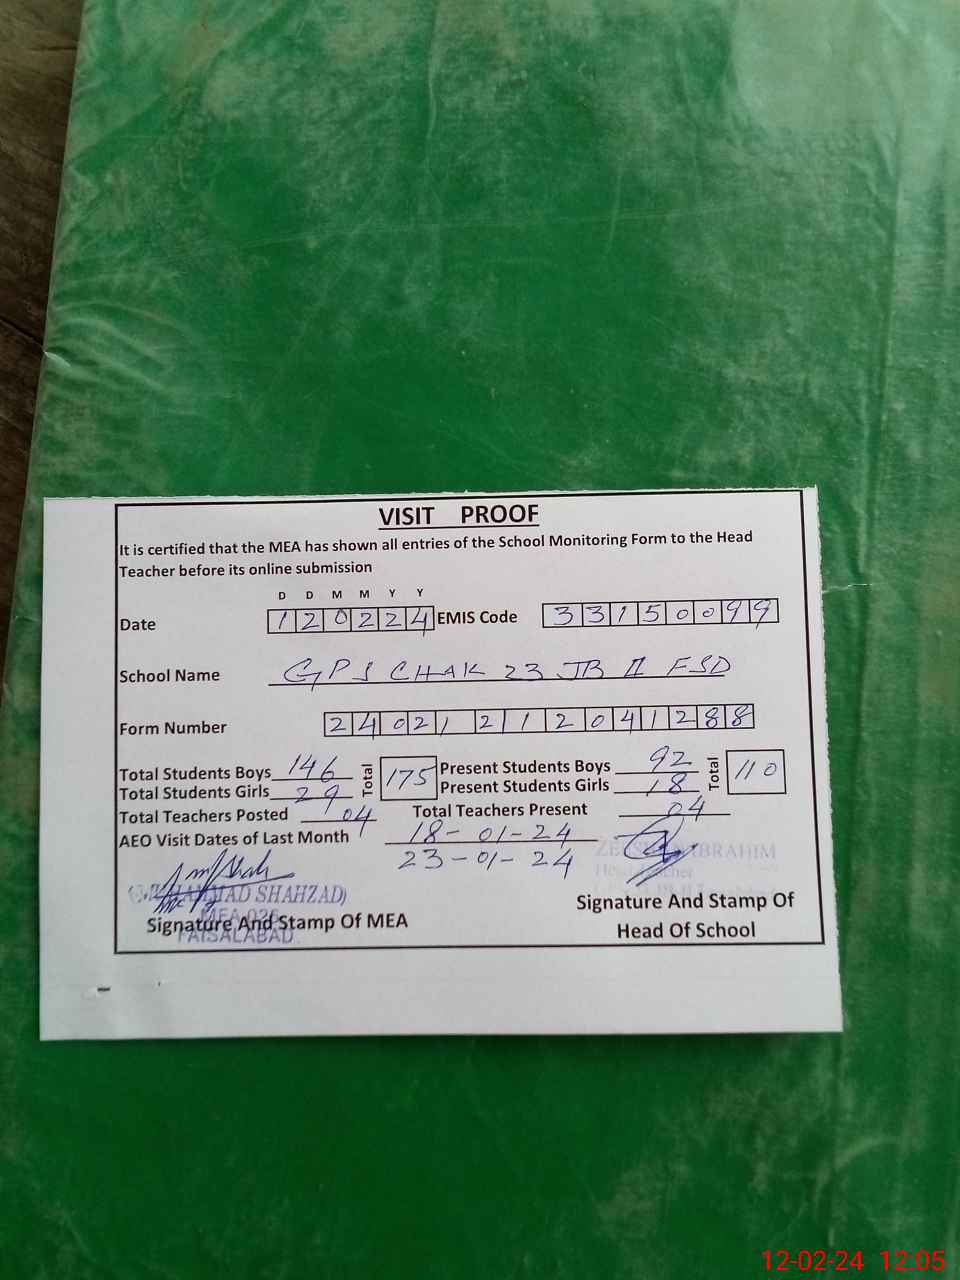 VISIT PROOF
It is certified that the MEA has shown all entries of the School Monitoring Form to the Head
Teacher before its online submission
D D M M Y Y
Date 120224 EMIS Code 33150099
School Name GPS CHAK 23 JB II FSD
Form Number 24021212041288
Total Students Boys 146 Total 175 Present Students Boys 92 Total 110
Total Students Girls 29 Present Students Girls 18
Total Teachers Posted 04 Total Teachers Present 04
AEO Visit Dates of Last Month 18-01-24
23-01-24
IBRAHIM
Head Teacher
SHAHZAD)
Signature And Stamp Of MEA
MEA
FAISALABAD
Signature And Stamp Of
Head Of School
12-02-24 12:05